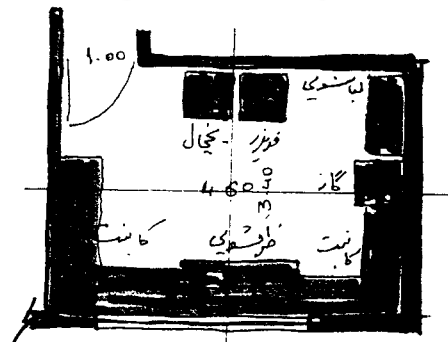 1.00
لباسشویی
فریزر - یخچال
4.60
3.40
گاز
کابینت
ظرفشویی
کابینت